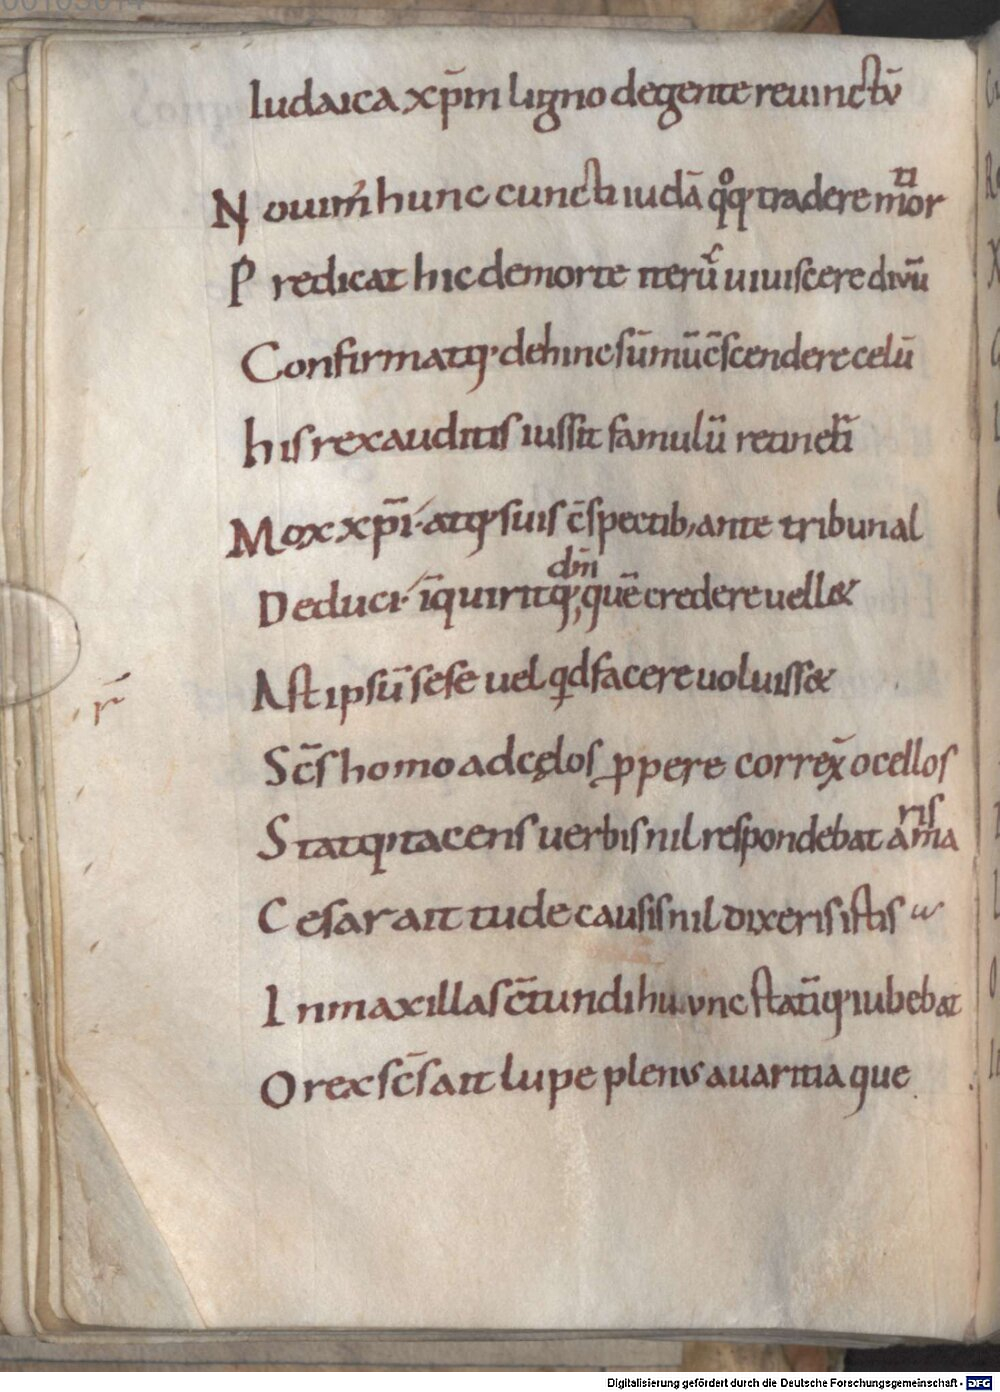 Iudaica xp̄m ligno degente reuinctū
Nouim̄ hunc cuncti iudā qͦq; tradere morti
Predicat hic demorte iterū uiuiscere diuū
Confirmatq; dehinc sūmū c̄scendere celū
his rex auditis iussit famulū retineri
Mox xp̄i atq; suis c̄spectib; ante tribunal
dm̄
Deduci īquiritq; quē credere uell&
Ast ipsū sese uel qd facere uoluiss&
r̄
Sc̄s homo ad cęlos ꝓpere correx̄ ocellos
Statq; tacens uerbis nil respondebat amaris
Cesar ait tu de causis nil dixeris istis
In maxillas c̄tundi hunc statīq; iubebat
O rex sc̄s ait lupe plenus auaritia que
Digitalisierung gefördert durch die Deutsche Forschungsgemeinschaft - DFG